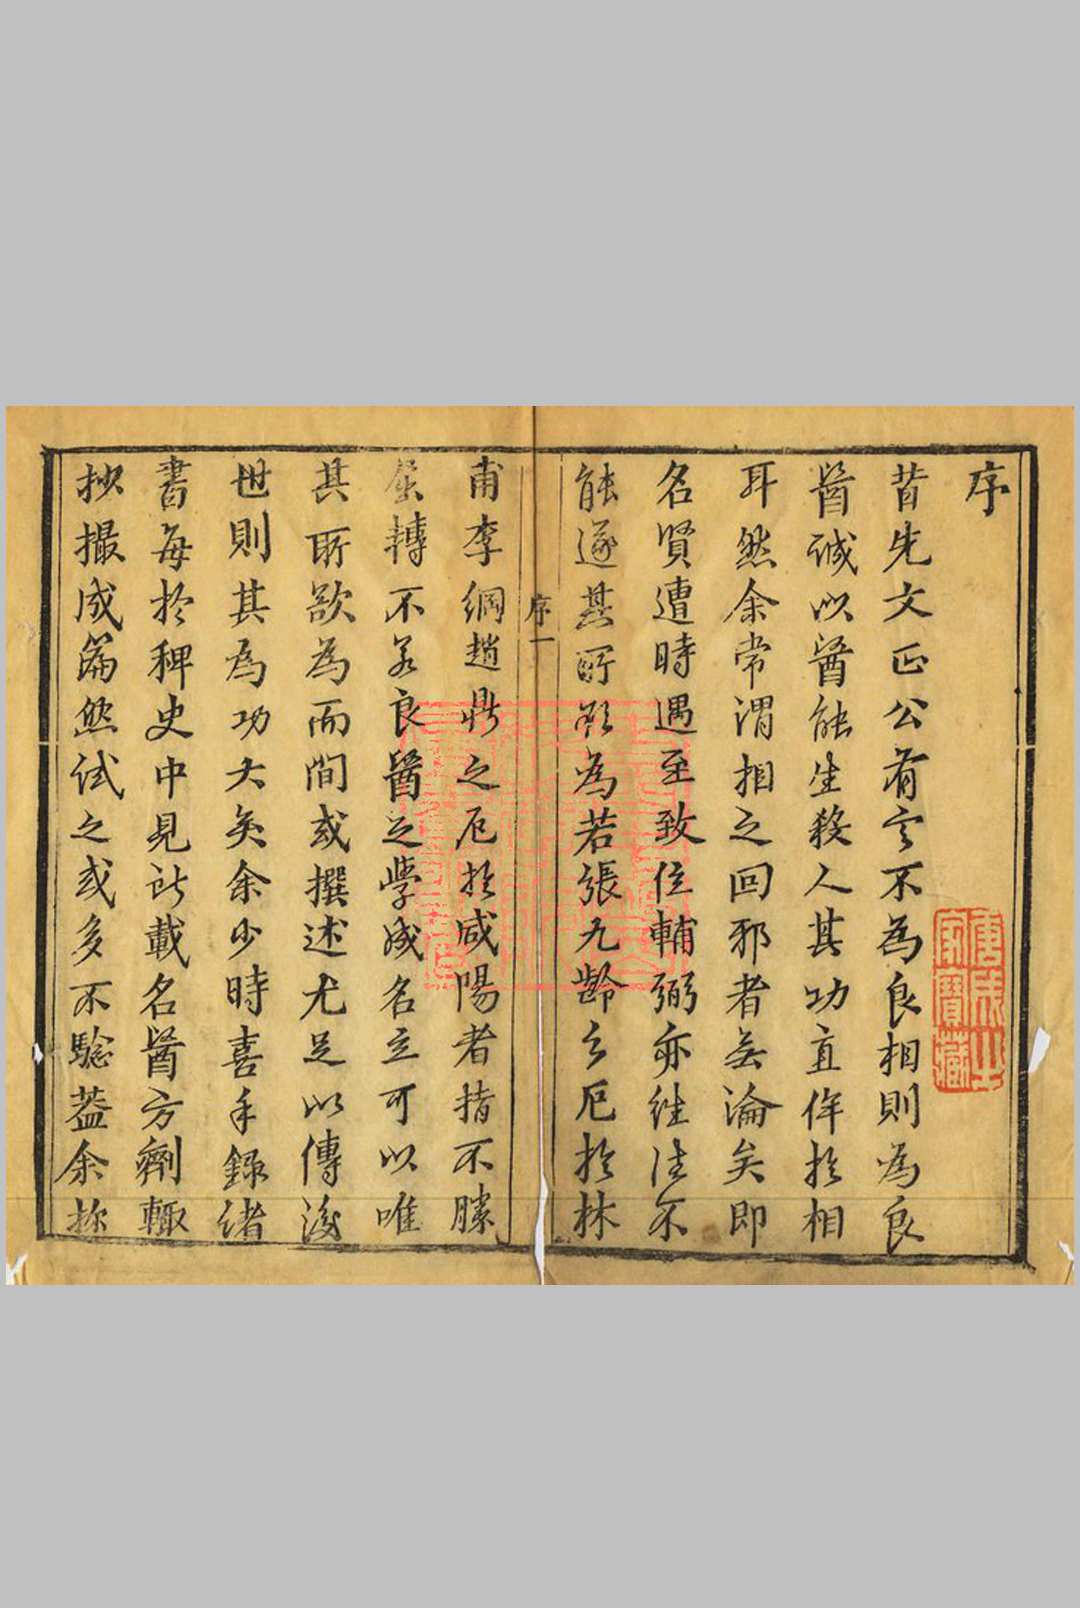 序
昔先文正公有言不為良相則為良
醫誠以醫能生殺人其功直侔於相
耳然余常謂相之回邪者無論矣即
名賢遭時遇主致位輔弼亦往往不
能遂其所欲為若張九齡之厄於林
甫李綱趙鼎之厄於咸陽者指不勝
屈轉不若良醫之學成名立可以唯
其所欲為而間或撰述尤足以傳後
世則其為功大矣余少時喜手錄諸
書每於稗史中見所載名醫方劑輒
抄撮成篇然試之或多不驗蓋余於
序一